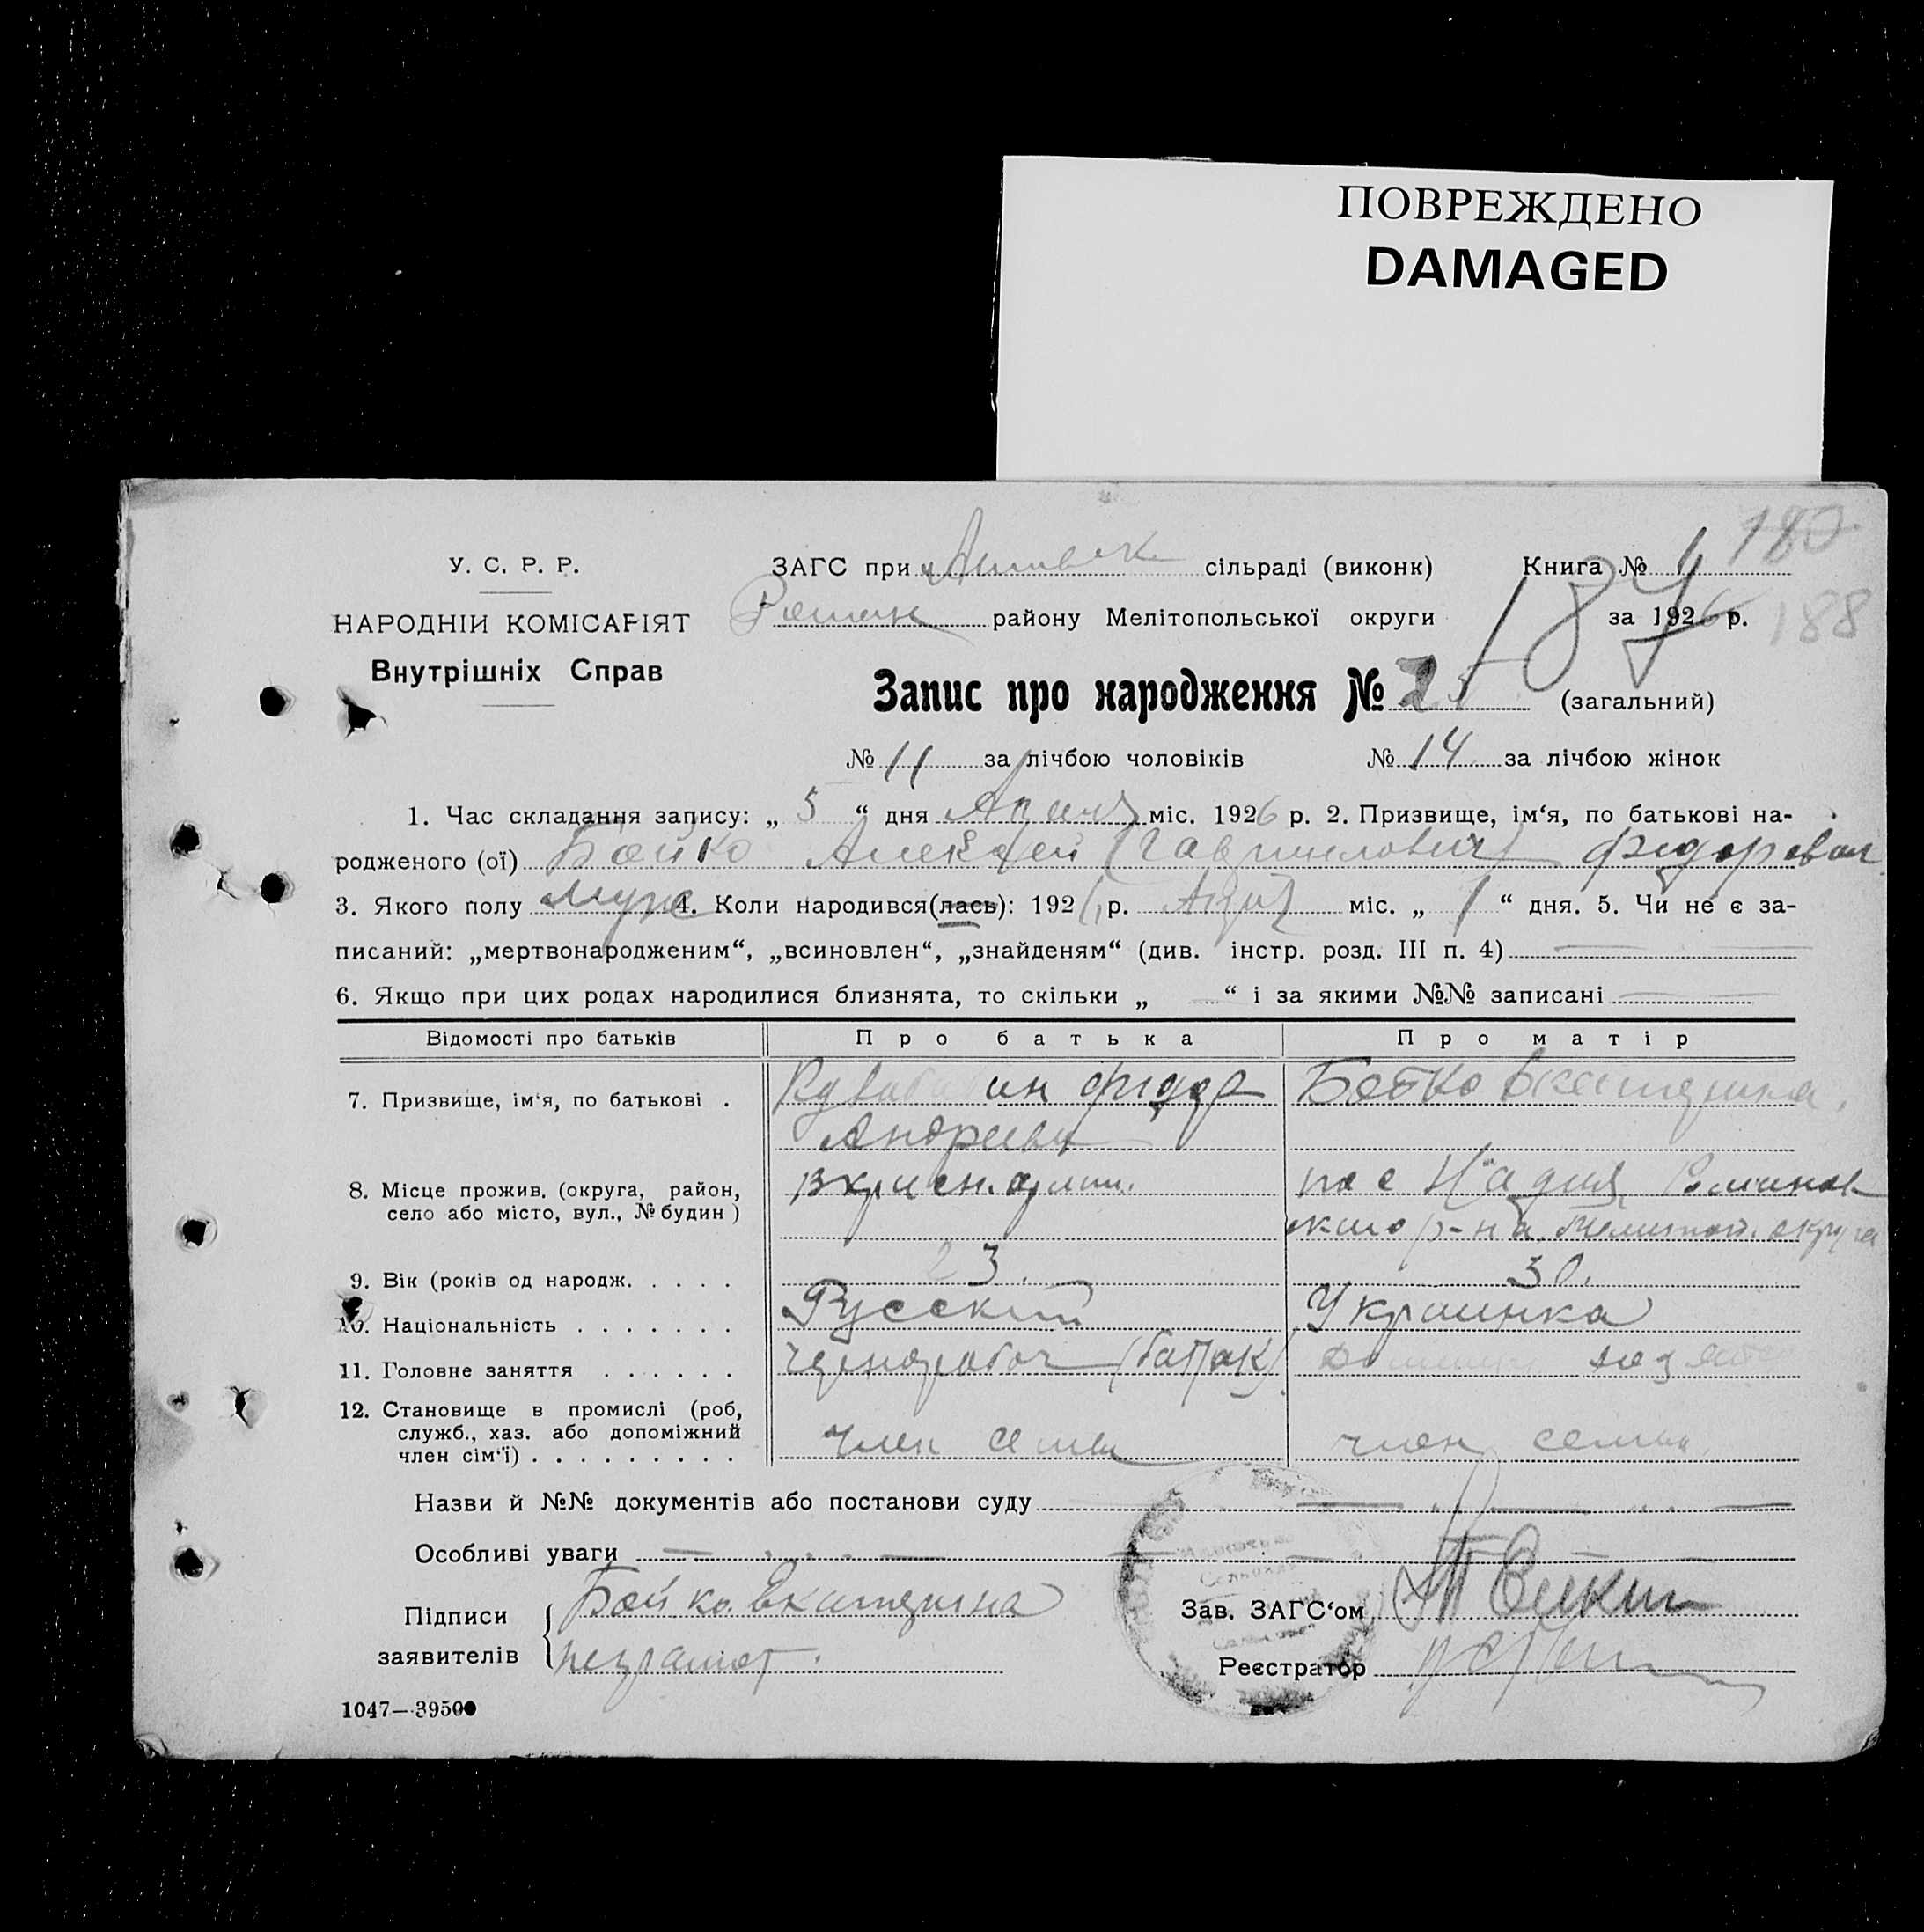 ПОВРЕЖДЕНО
DAMAGED
180
У. С. Р. Р.
ЗАГС при сільраді (виконк) Книга № 1
НАРОДНІЙ КОМІСАРІЯТ
району Мелітопольської округи за 1926 р. 188
187
Внутрішніх Справ
Запис про народження № 25 (загальний)
№ 11 за лічбою чоловіків № 14 за лічбою жінок
1. Час складання запису: „ 5 “ дня міс. 1926 р. 2. Призвище, ім‘я, по батькові на-
родженого (ої) Бойко Алексей (Гаврилович)
3. Якого полу муж 4. Коли народився(лась): 192 р. міс. „ 1 “ дня. 5. Чи не є за-
писаний: „мертвонародженим“, „всиновлен“, „знайденям“ (див. інстр. розд. III п. 4)
6. Якщо при цих родах народилися близнята, то скільки „ “ і за якими №№ записані
Відомості про батьків Про батька Про матір
7. Призвище, ім‘я, по батькові . Бойко Екатерина
8. Місце прожив. (округа, район,
село або місто, вул., № будин)
9. Вік (років од народж. . . . . 23. 30.
10. Національність . . . . . . . Русский Украинка
11. Головне заняття . . . . . . чернорабоч (батрак)
12. Становище в промислі (роб,
служб., хаз. або допоміжний
член сім‘ї) . . . . . . . . . член семьи член семьи
Назви й №№ документів або постанови суду
Особливі уваги
Підписи Бойко Екатерина
Зав. ЗАГС‘ом
заявителів неграмот.
Реєстратор
1047—39500